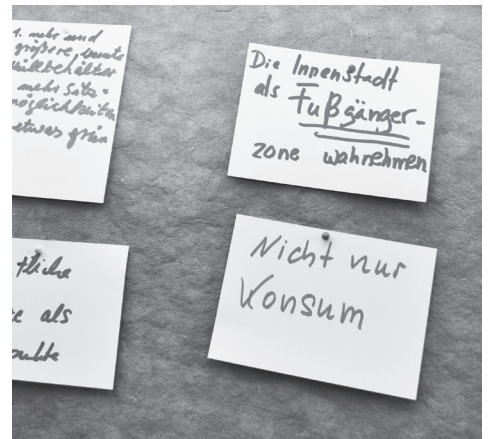 1. mehr und
größere, bunte
Müllbehälter
mehr Sitz-
möglichkeiten
etwas grün
Die Innenstadt
als Fußgänger-
zone wahrnehmen
tliche
als
Nicht nur
Konsum